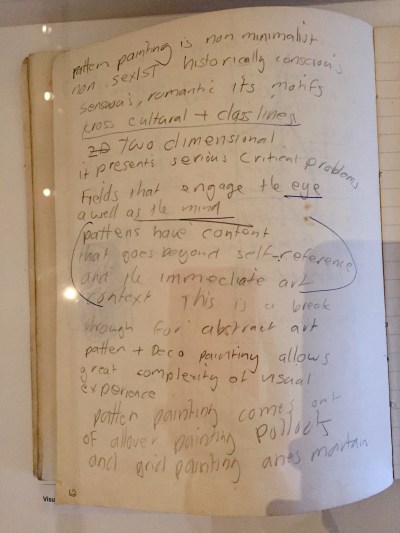 pattern painting is non minimalist
non sexist historically conscious
sensous, romantic its motifs
cross cultural + class lines
2D two dimensional
it presents serious critical problems
Fields that engage the eye
a well as the mind
pattens have content
that goes beyond self-reference
and the immediate art
context This is a break
through for abstract art
patten + Deco painting allows
great complexity of visual
experience
patten painting comes out
of allover painting Pollock
and grid painting anes martain
12
Visu